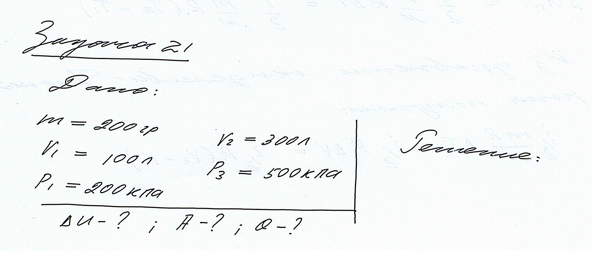 Задача 21
Дано:
m = 200 гр
V₁ = 100 л
P₁ = 200 кПа
V₂ = 300 л
P₃ = 500 кПа
Решение:
ΔU - ? ; A - ? ; Q - ?